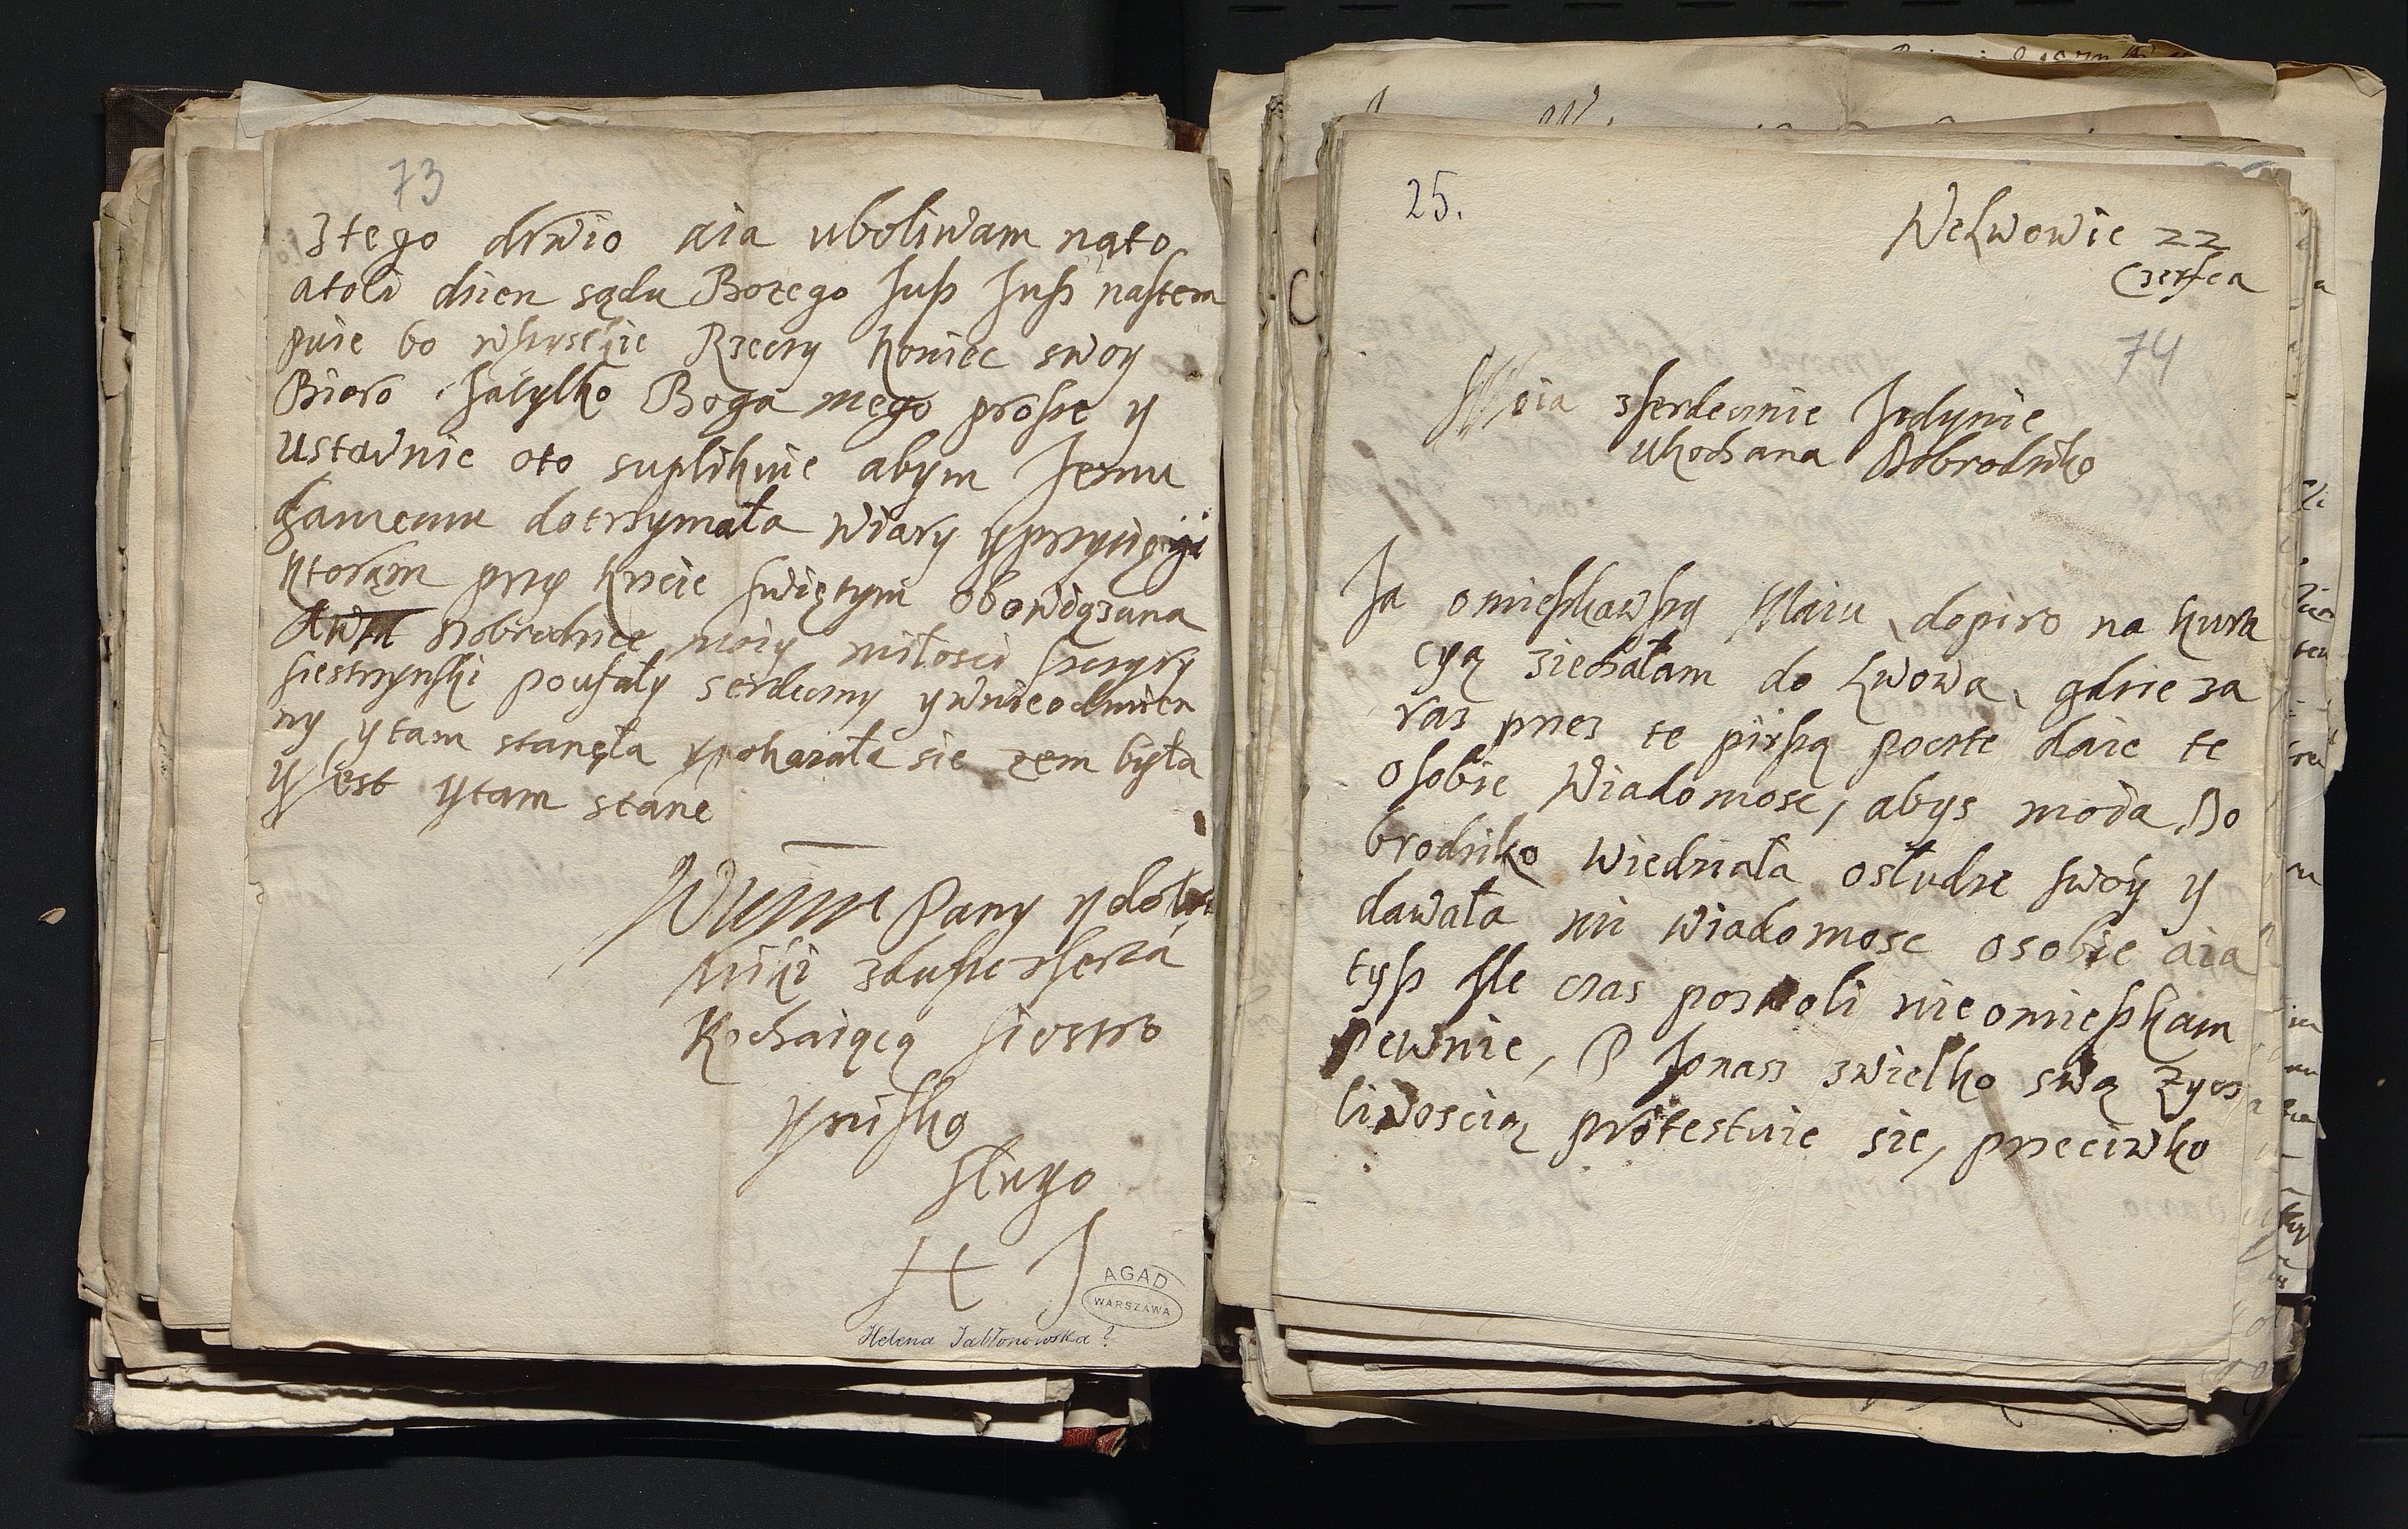 73
Ztego drwio aia uboliwam nato
atoli dzien sądu Bozego Jusz Jusz nastem
puie bo wszyskie Rzeczy koniec swoy
Bioro Jatylko Boga mego prosze y
ustawnie oto suplikuie abym Jemu
samemu dotrzymała wiary yprzysięgi
ktorąm przy krzcie swiętym obowiązana
Dobrodzice moiy miłosci sczyry
siestrzynski poufały serdeczny ywnieodmien
ny ytam stanęła ypokazała sie zem była
yJest ytam stane
Pany ydobro
ziki zdusze zserca
Kochaiącą siostro
yniską
sługo
H J
AGAD
WARSZAWA
Helena Jabłonowska?
25.
WeLwowie 22
Czerfca
74
Moia zserdecznie Jedynie
ukochana Dobrodziko
Ja omieszkawszy Maiu dopiro na kura
cyą ziechałam do Lwowa, gdzie za
raz przez te pirszą poczte daie te
osobie Wiadomosc, abys moia Do
brodziko wiedziała osłudze swoiy y
dawała mi wiadomosc osobie aia
tysz Jle czas pozwoli nieomieszkam
pewnie, P Jonasz zwielko swą zycz
liwoscią protestuie sie, przeciwko